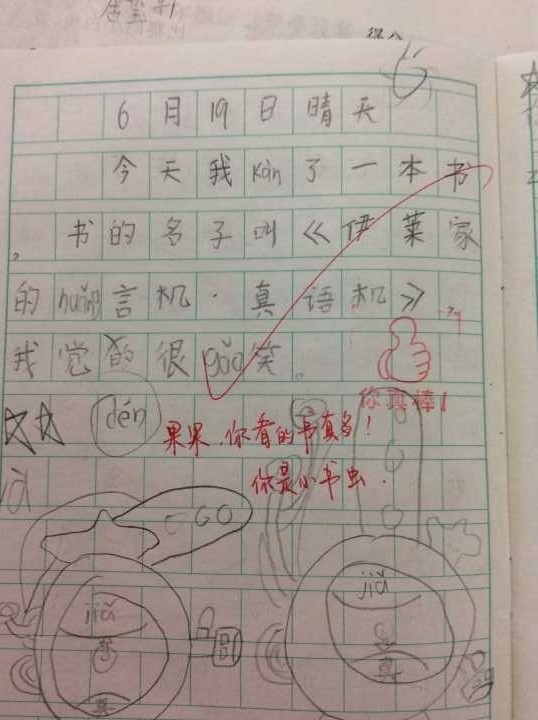 得分
6月19日晴天
今天我kàn了一本书
,书的名子叫《伊莱家
的huǎng言机·真语机》
我觉的很gǎo笑。
你真棒!
dén
果果,你看的书真多!
你是小书虫.
GO
jiǎ
jiǎ
真